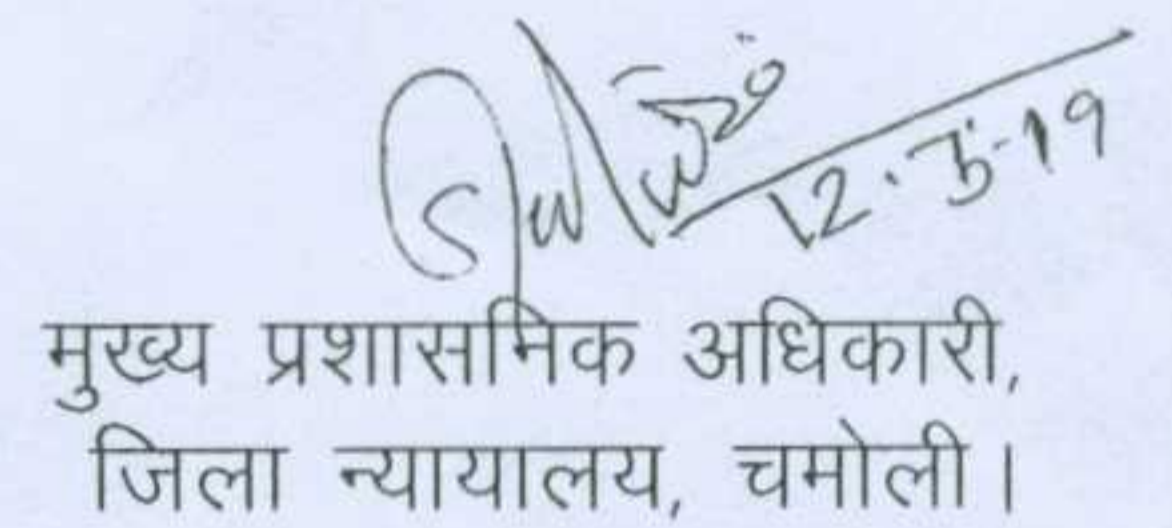 मुख्य प्रशासनिक अधिकारी,
जिला न्यायालय, चमोली।